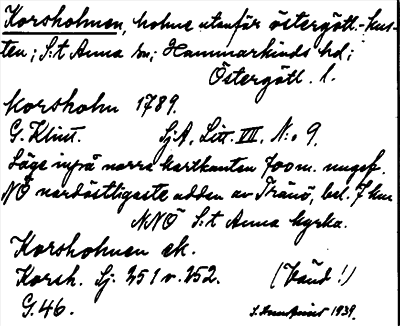 Korsholmen, holme utanför östergötl.-kus-
ten; S:t Anna sn; Hammarkinds hd;
Östergötl. l.
Korsholm 1789.
G. Klint. Sj.A, Litt. VII, N:o 9.
Läge inpå norra kartkanten 700 m. ungef.
NÖ nordöstligaste udden av Tränö, bel. 7 km
NNÖ S:t Anna kyrka.
Korsholmen ek.
Korsh. Sj. 251 v. 252. (Vänd!)
G. 46. 1939.